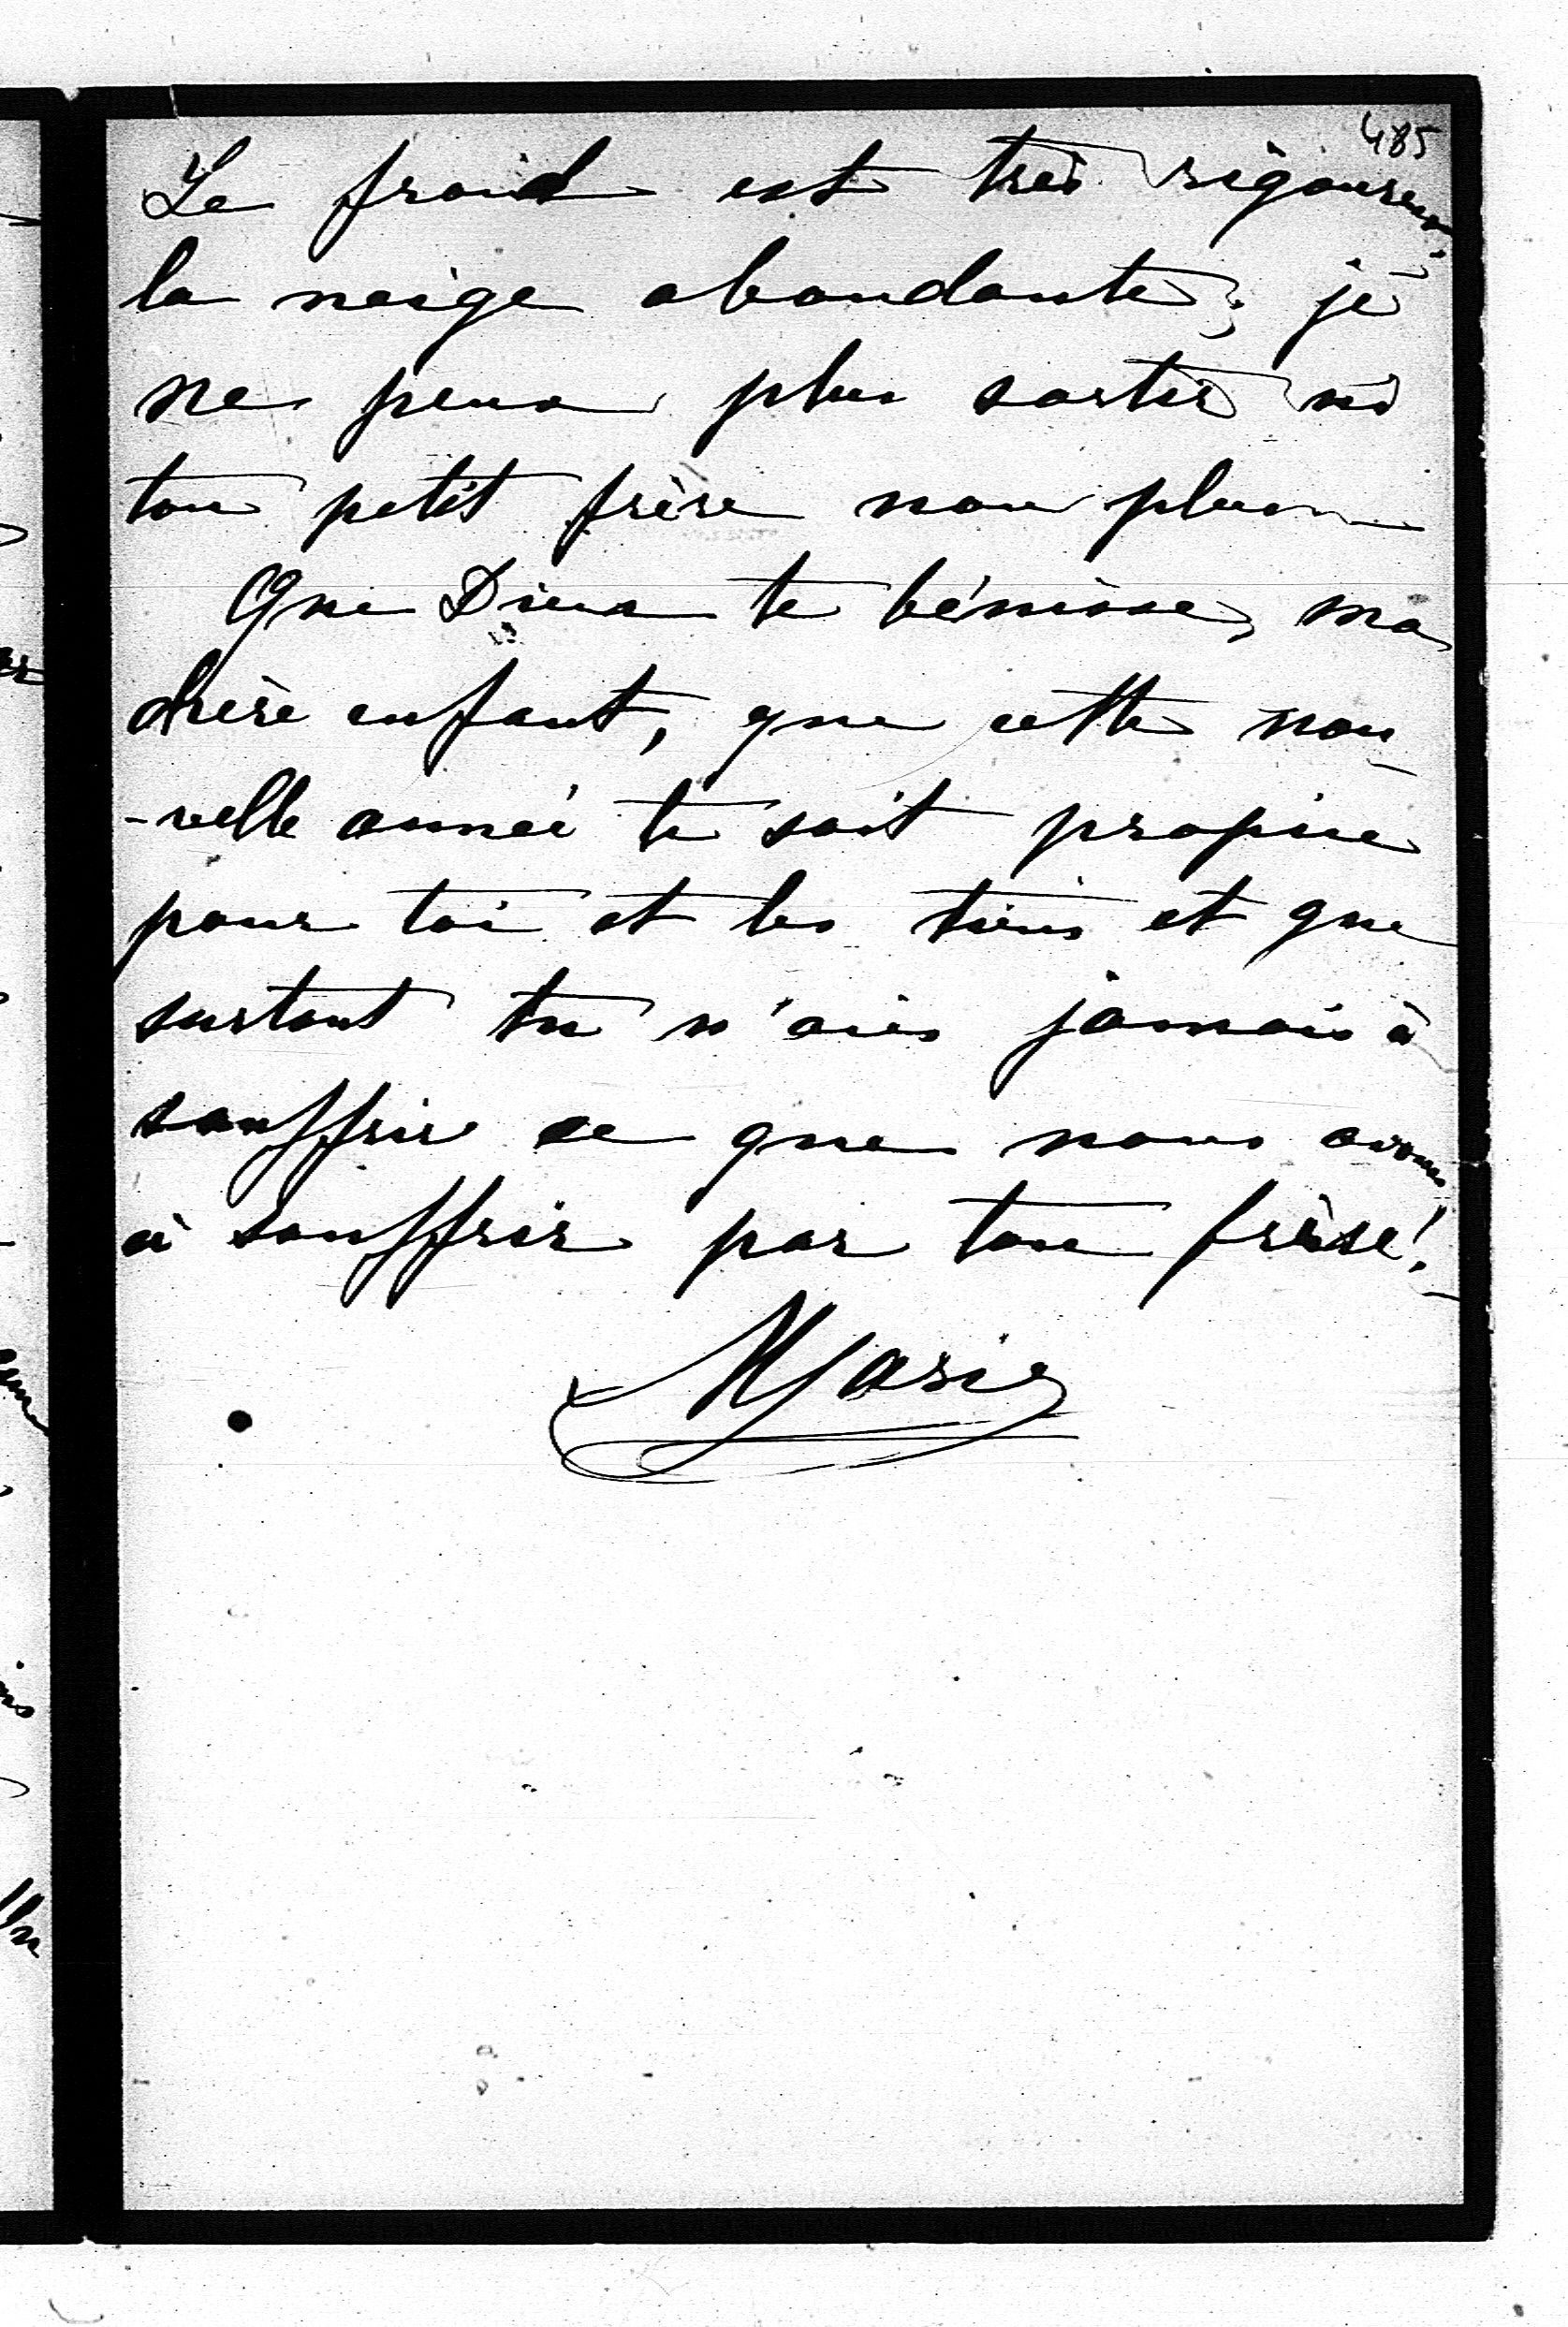 485
Le froid est très rigoureux,
la neige abondante ; je
ne peux plus sortir ni
ton petit frère non plus
Que Dieu te bénisse, ma
chère enfant, que cette nou
-velle année te soit propice
pour toi et les tiens et que
surtout tu n'aies jamais à
souffrir ce que nous avons
à souffrir par ton frère !
Marie